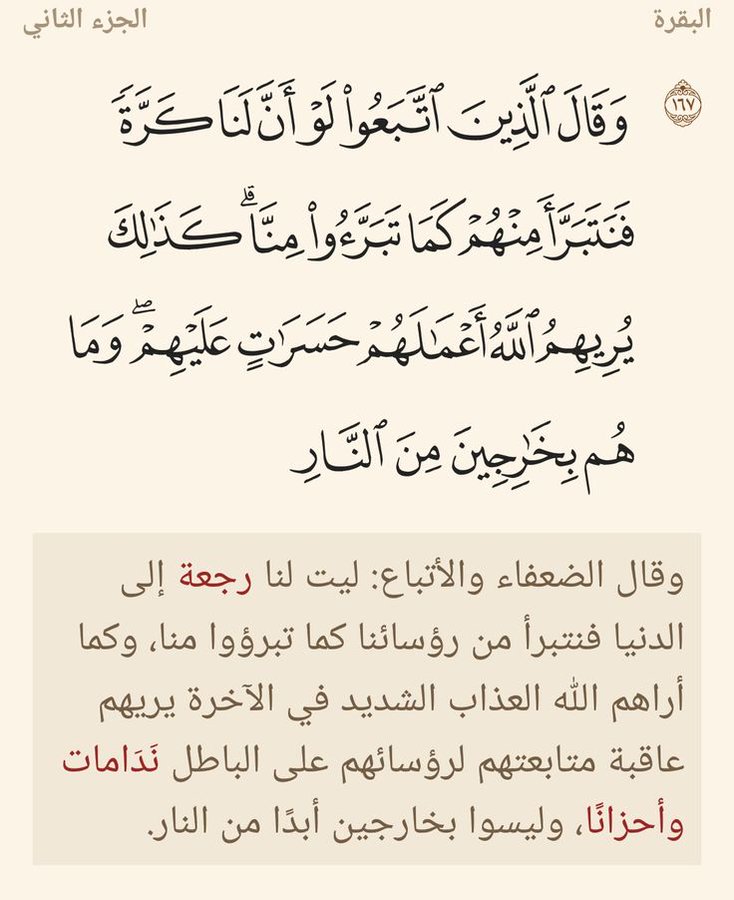 البقرة
الجزء الثاني
١٦٧
وَقَالَ ٱلَّذِينَ ٱتَّبَعُوا۟ لَوْ أَنَّ لَنَا كَرَّةً
فَنَتَبَرَّأَ مِنْهُمْ كَمَا تَبَرَّءُوا۟ مِنَّا ۗ كَذَٰلِكَ
يُرِيهِمُ ٱللَّهُ أَعْمَـٰلَهُمْ حَسَرَٰتٍ عَلَيْهِمْ ۖ وَمَا
هُم بِخَـٰرِجِينَ مِنَ ٱلنَّارِ
وقال الضعفاء والأتباع: ليت لنا رجعة إلى
الدنيا فنتبرأ من رؤسائنا كما تبرؤوا منا، وكما
أراهم الله العذاب الشديد في الآخرة يريهم
عاقبة متابعتهم لرؤسائهم على الباطل نَدَامات
وأحزانًا، وليسوا بخارجين أبدًا من النار.